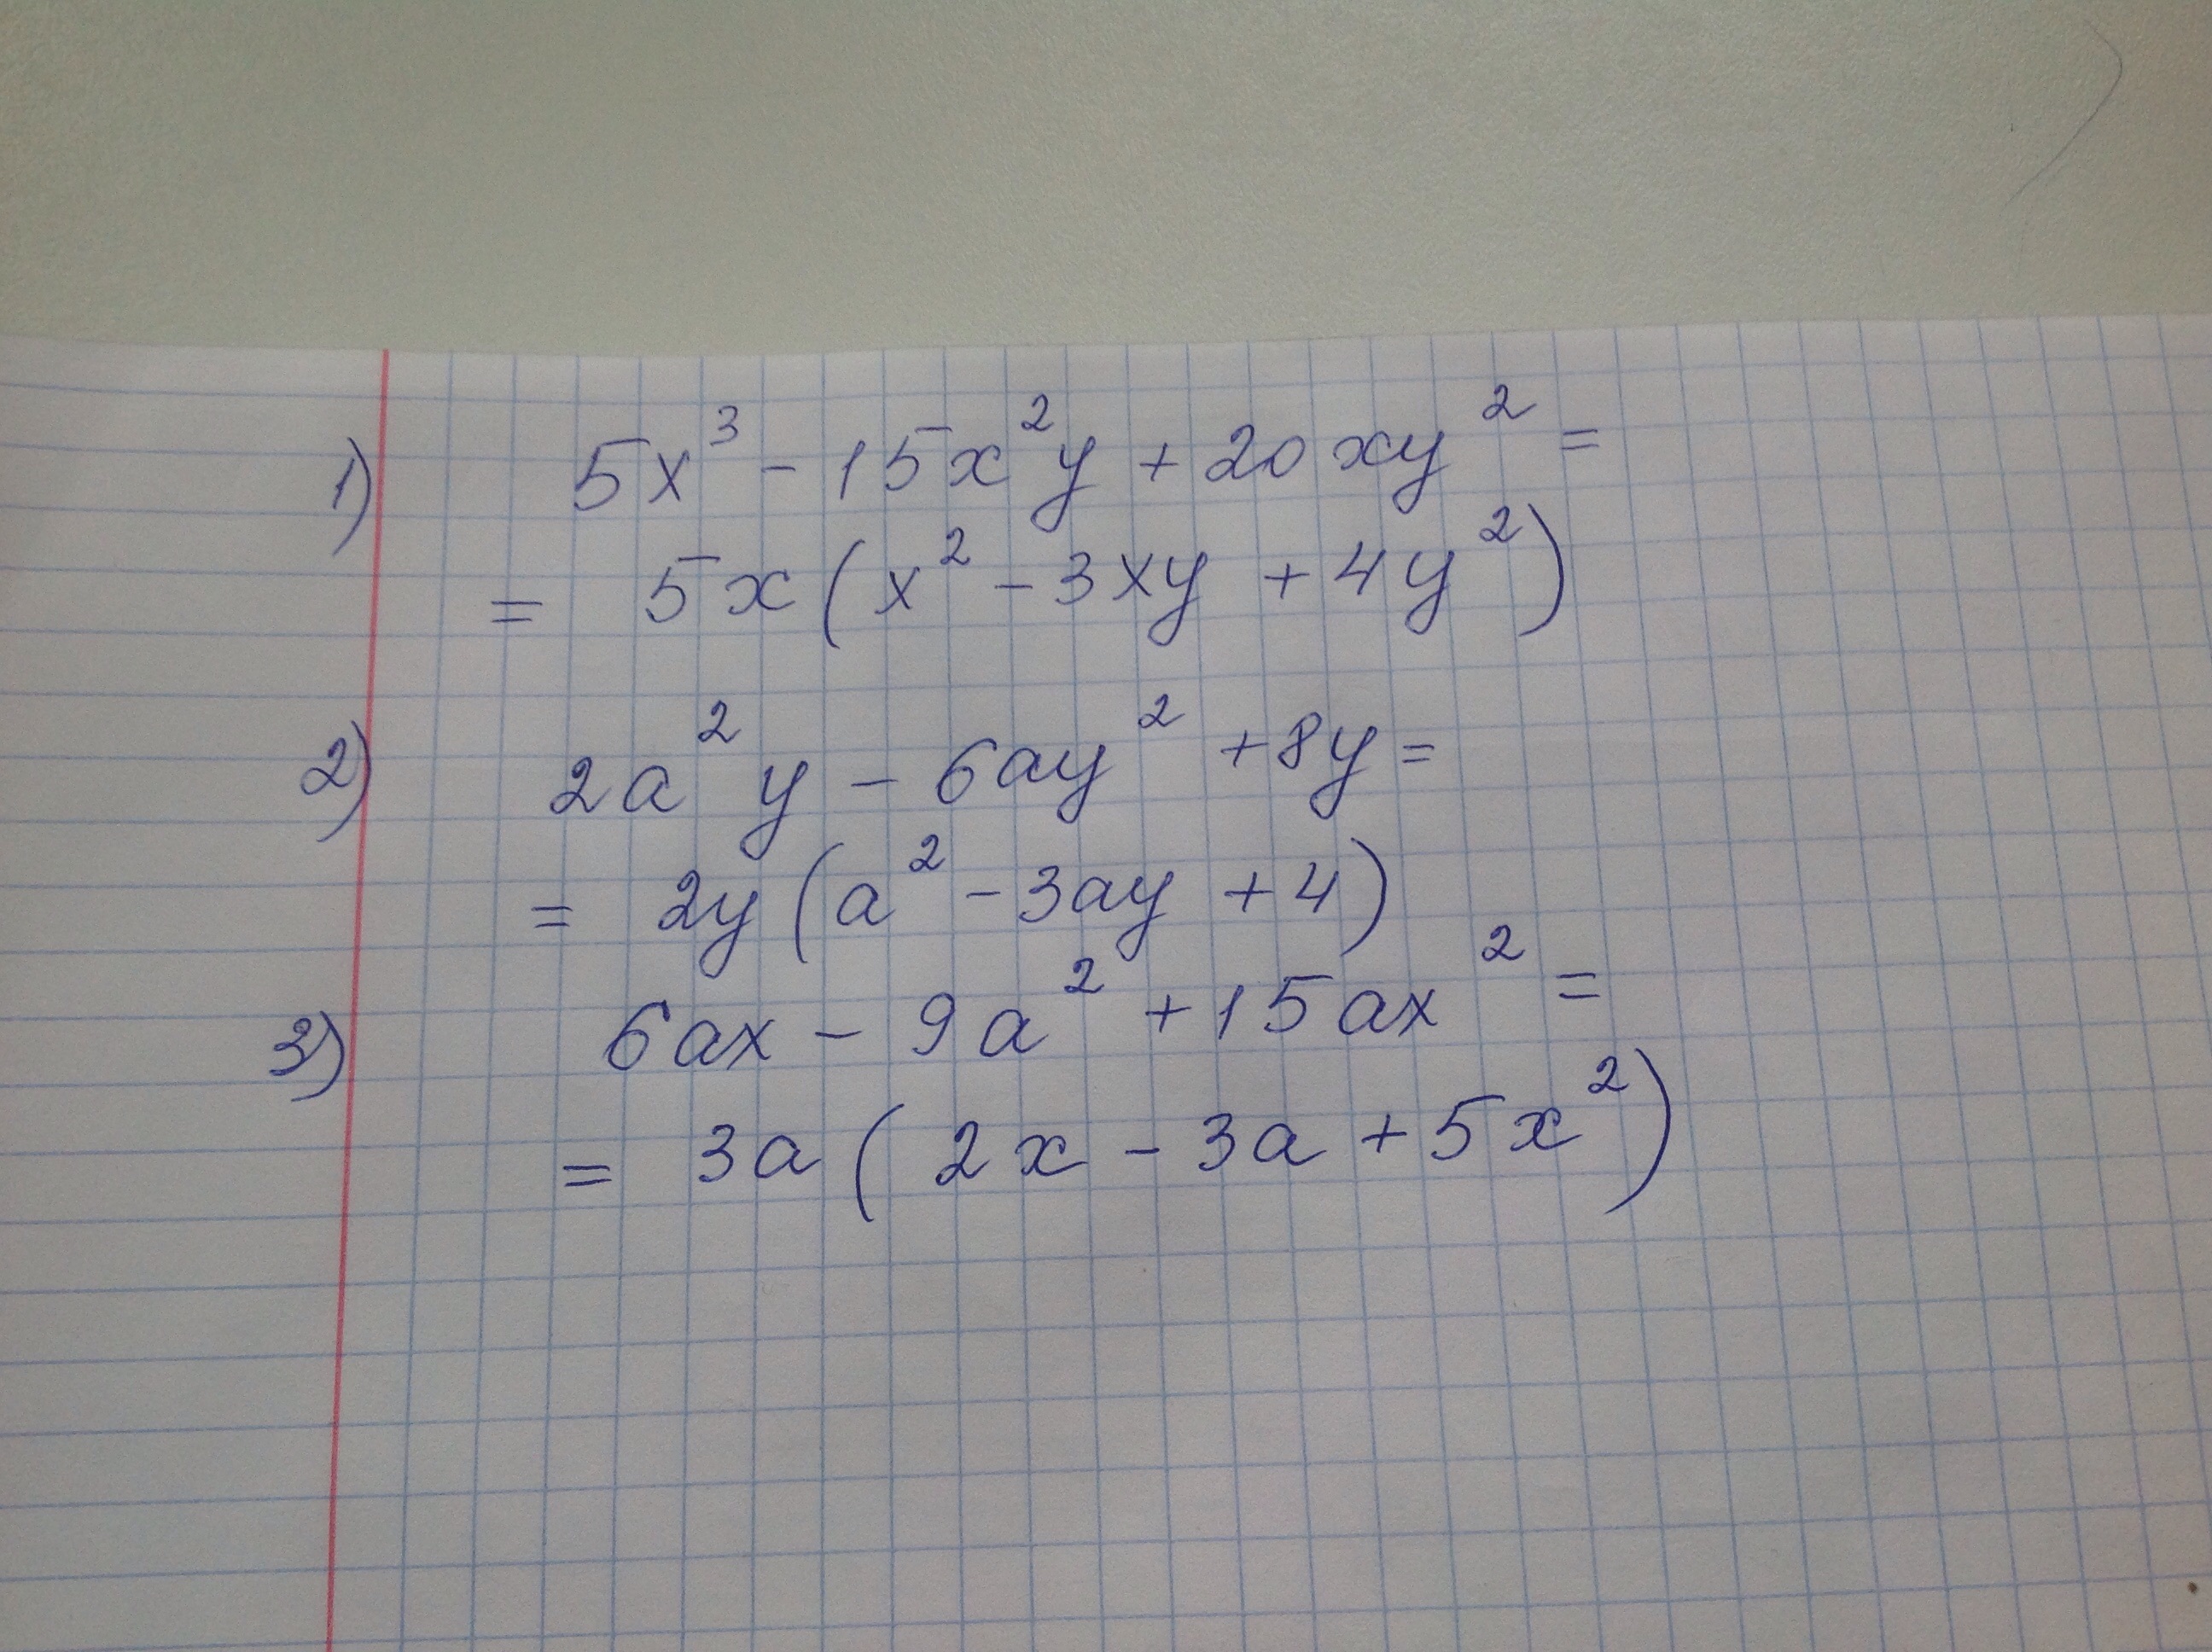 1) 5x³ - 15x²y + 20xy² =
= 5x(x² - 3xy + 4y²)
2) 2a²y - 6ay² + 8y =
= 2y(a² - 3ay + 4)
3) 6ax - 9a² + 15ax² =
= 3a(2x - 3a + 5x²)